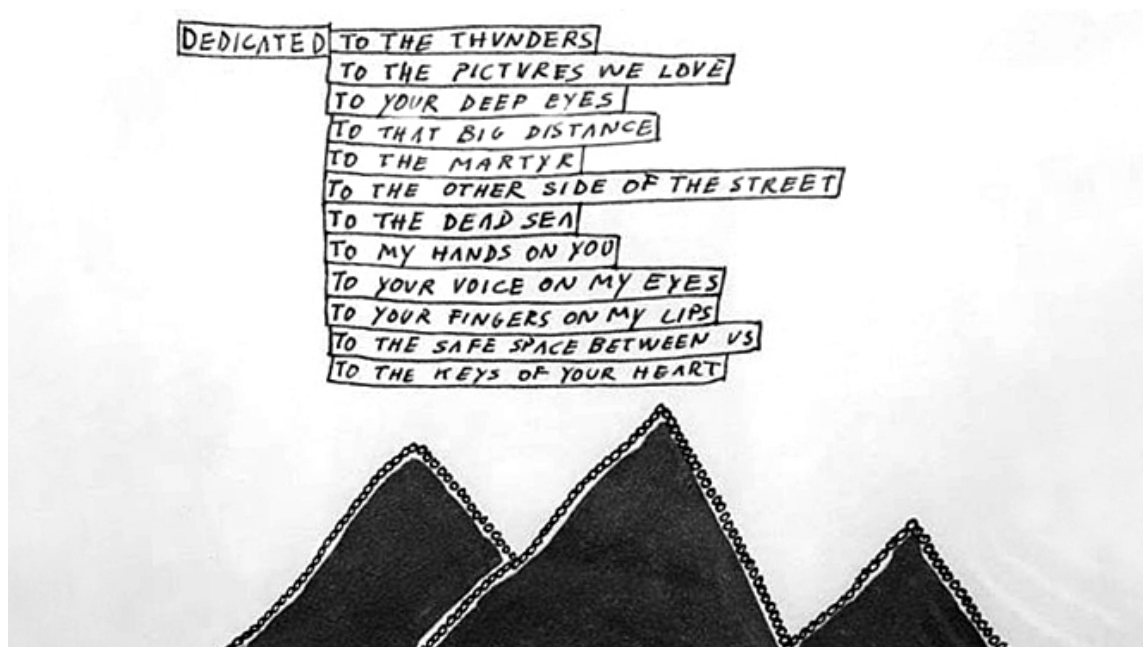 DEDICATED TO THE THUNDERS
TO THE PICTURES WE LOVE
TO YOUR DEEP EYES
TO THAT BIG DISTANCE
TO THE MARTYR
TO THE OTHER SIDE OF THE STREET
TO THE DEAD SEA
TO MY HANDS ON YOU
TO YOUR VOICE ON MY EYES
TO YOUR FINGERS ON MY LIPS
TO THE SAFE SPACE BETWEEN US
TO THE KEYS OF YOUR HEART